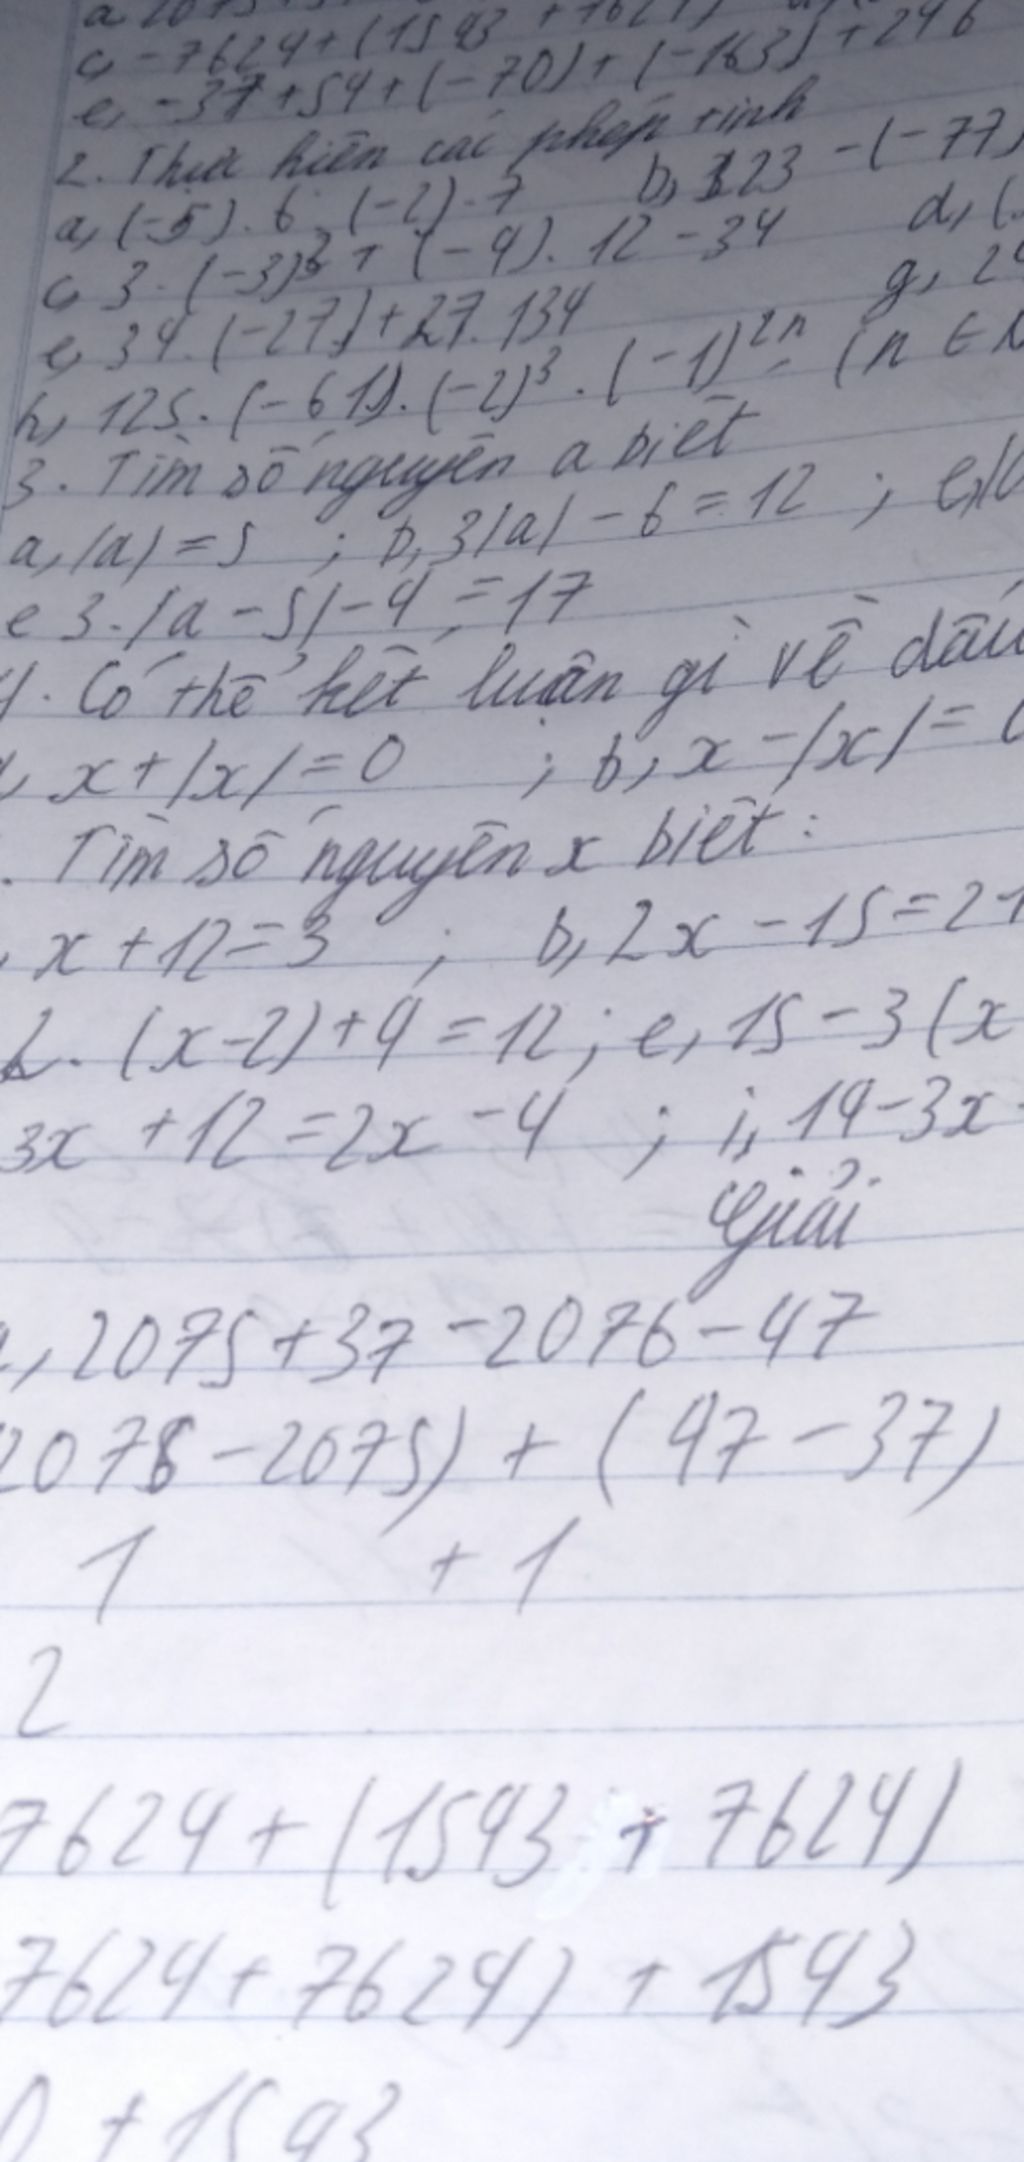 c, -7624+(1543 +7624)
e, -37+54+(-70)+(-163)+246
2. Thực hiện các phép tính
a, (-5).6.(-2).7 b, 123 -(-77)
c, 3.(-3)³+(-4).12-34 d, (
e, 34.(-27)+27.134 g, 2
h, 125.(-61).(-2)³.(-1)²ⁿ (n ∈ N
3. Tìm số nguyên a biết
a, |a|=5 ; b, 3|a|-6=12 ;
e 3.|a-5|-4=17
4. Có thể kết luận gì về dấu
x+|x|=0 ; b, x-|x|=0
. Tìm số nguyên x biết:
x+12=3 ; b, 2x-15=21
2.(x-2)+4=12; e, 15-3(x
3x+12=2x-4 ; i, 14-3x
Giải
, 2075+37-2076-47
2076-2075)+(47-37)
1 +1
2
7624+(1543+7624)
7624+7624)+1543
0+1543